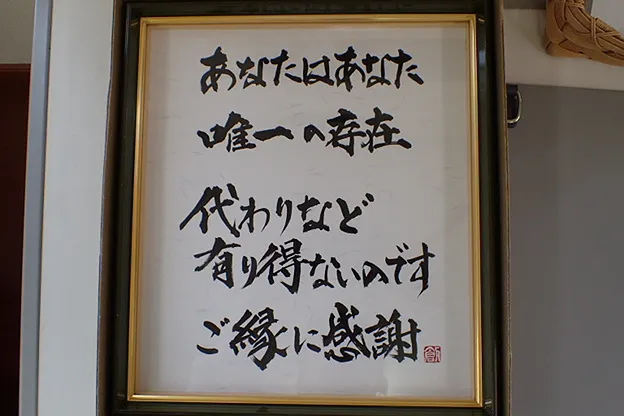 あなたはあなた
唯一の存在
代わりなど
有り得ないのです
ご縁に感謝